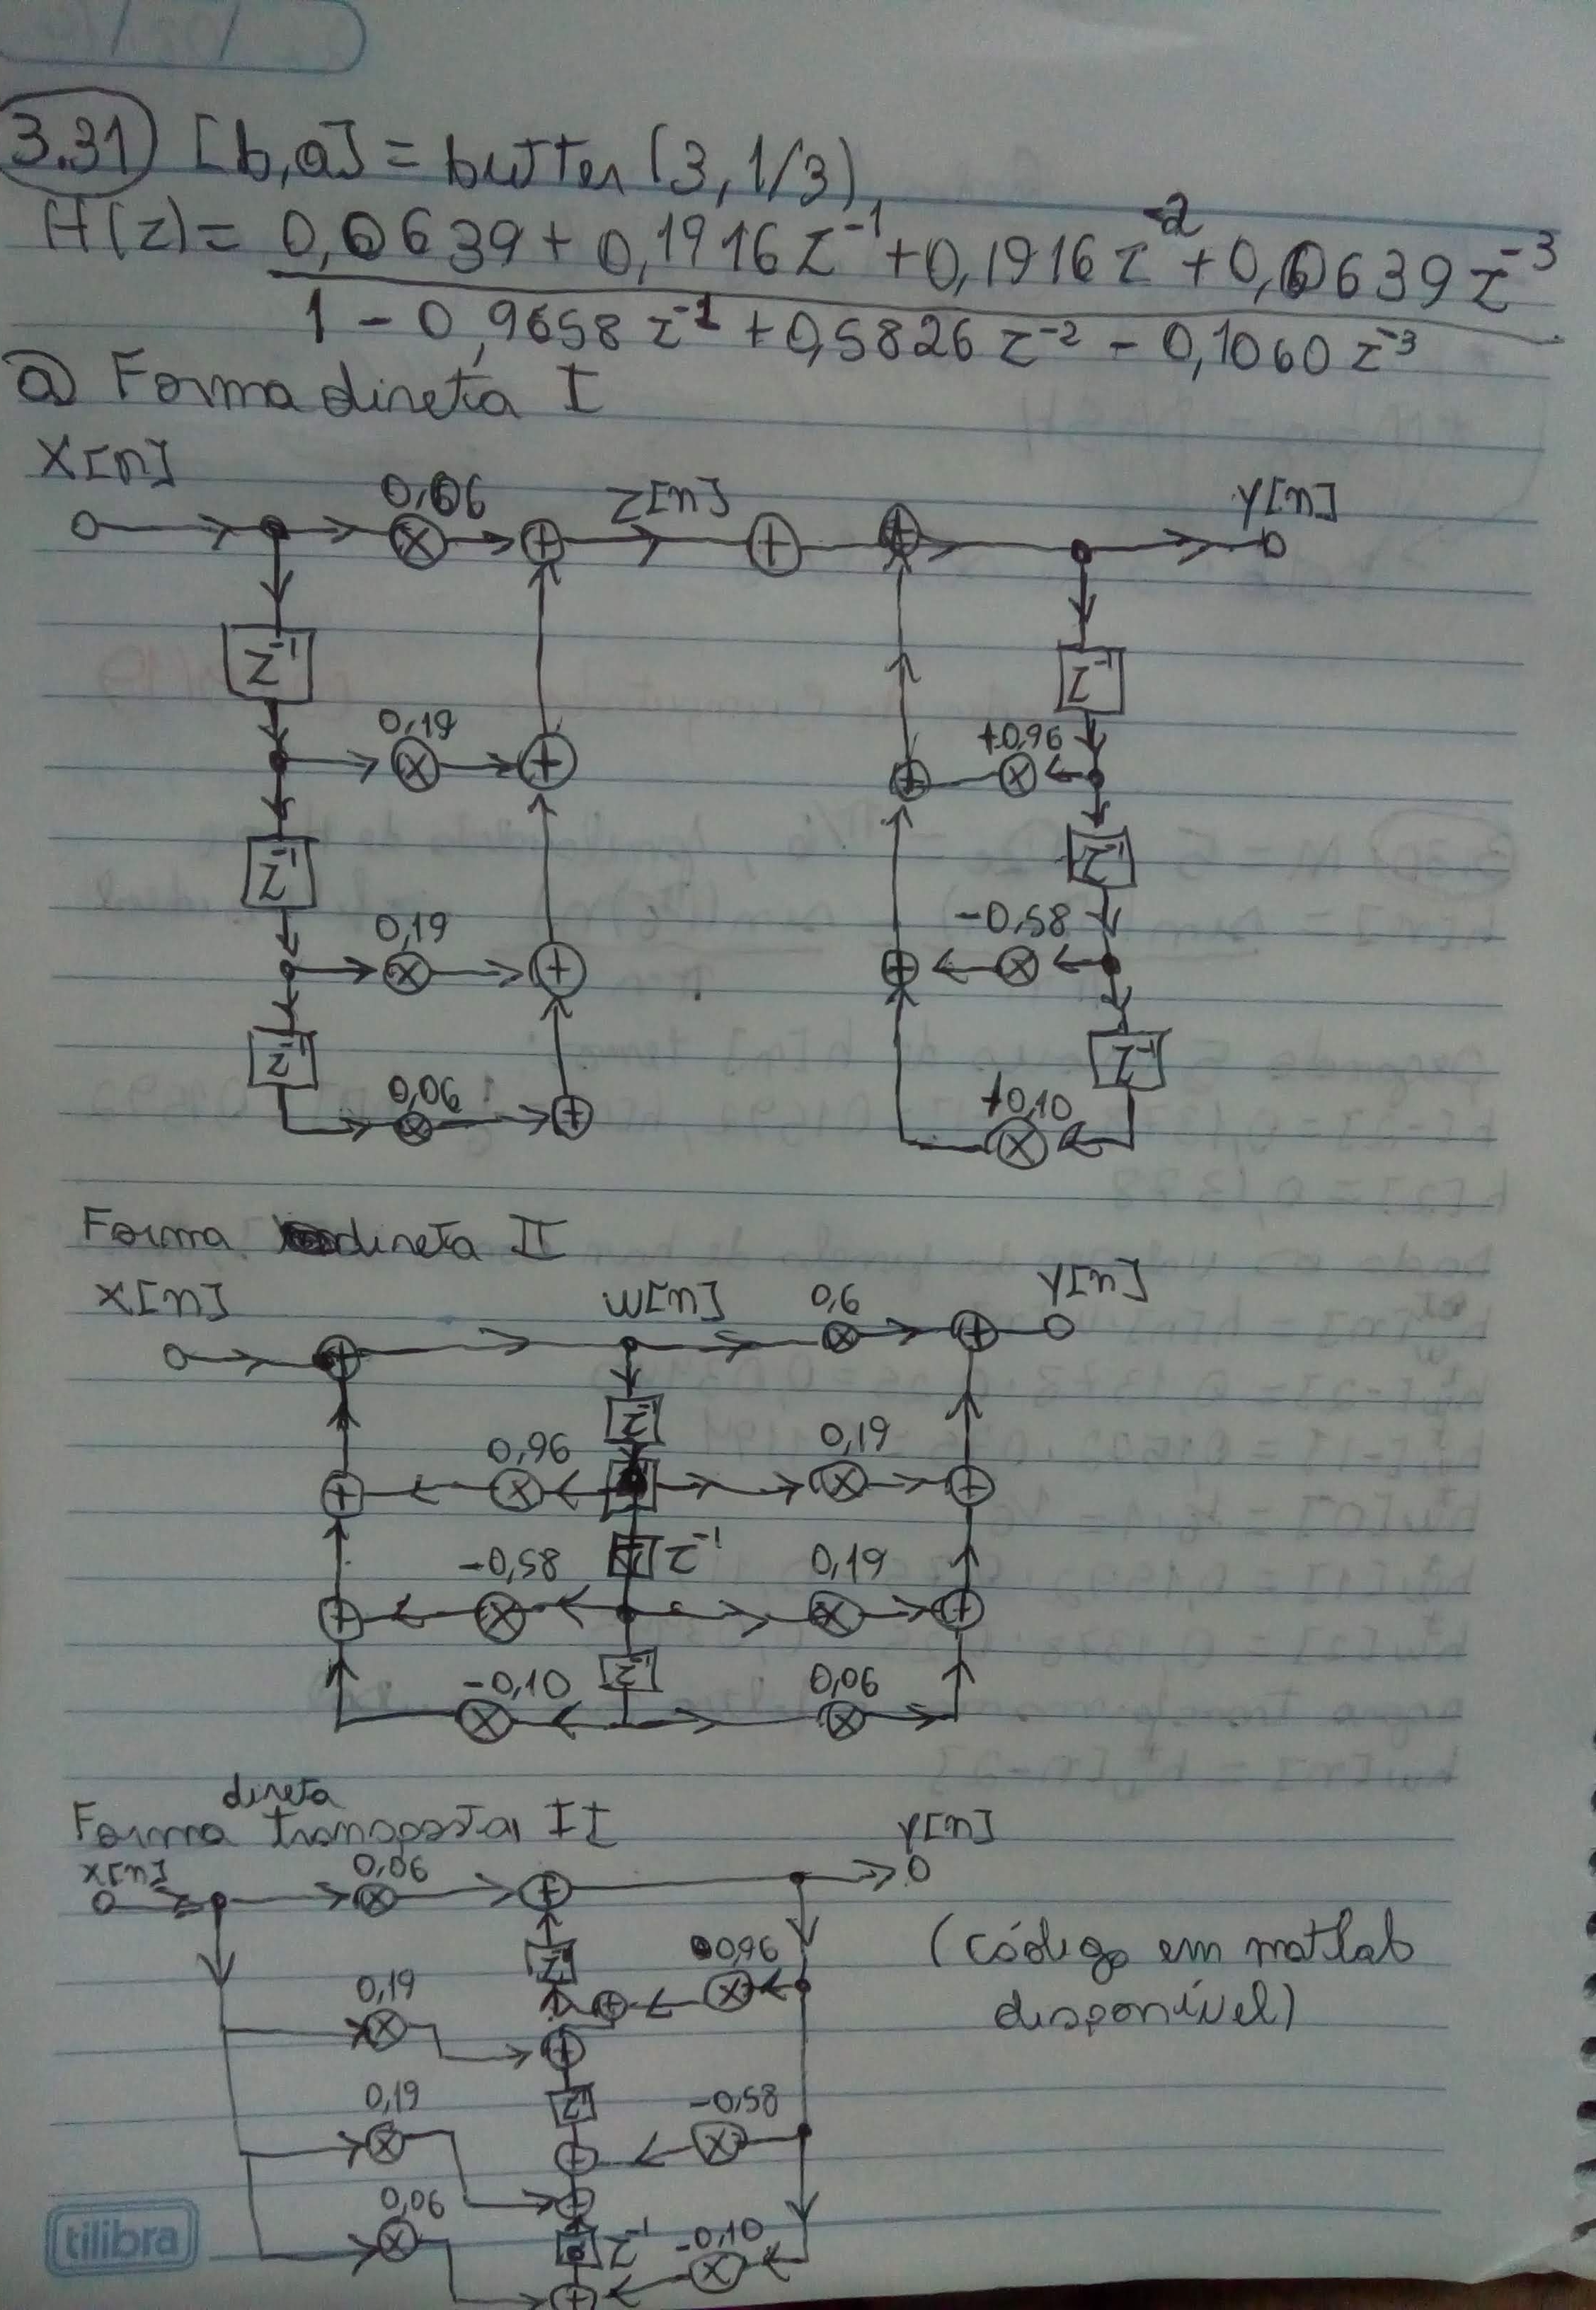 3.31) [b,a] = butter (3, 1/3)
H(z) = 0,0639 + 0,1916 z⁻¹ + 0,1916 z⁻² + 0,0639 z⁻³
1 - 0,9658 z⁻¹ + 0,5826 z⁻² - 0,1060 z⁻³
a) Forma direta I
X[n]
0,06
Z[n]
Y[n]
z⁻¹
z⁻¹
0,19
+0,96
z⁻¹
z⁻¹
0,19
-0,58
z⁻¹
z⁻¹
0,06
+0,10
Forma direta II
X[n]
w[n]
0,6
Y[n]
z⁻¹
0,96
0,19
z⁻¹
-0,58
0,19
z⁻¹
-0,10
0,06
Forma direta transposta II
X[n]
0,06
Y[n]
z⁻¹
0,96
(código em matlab
disponível)
0,19
z⁻¹
0,19
-0,58
0,06
z⁻¹
-0,10
tilibra